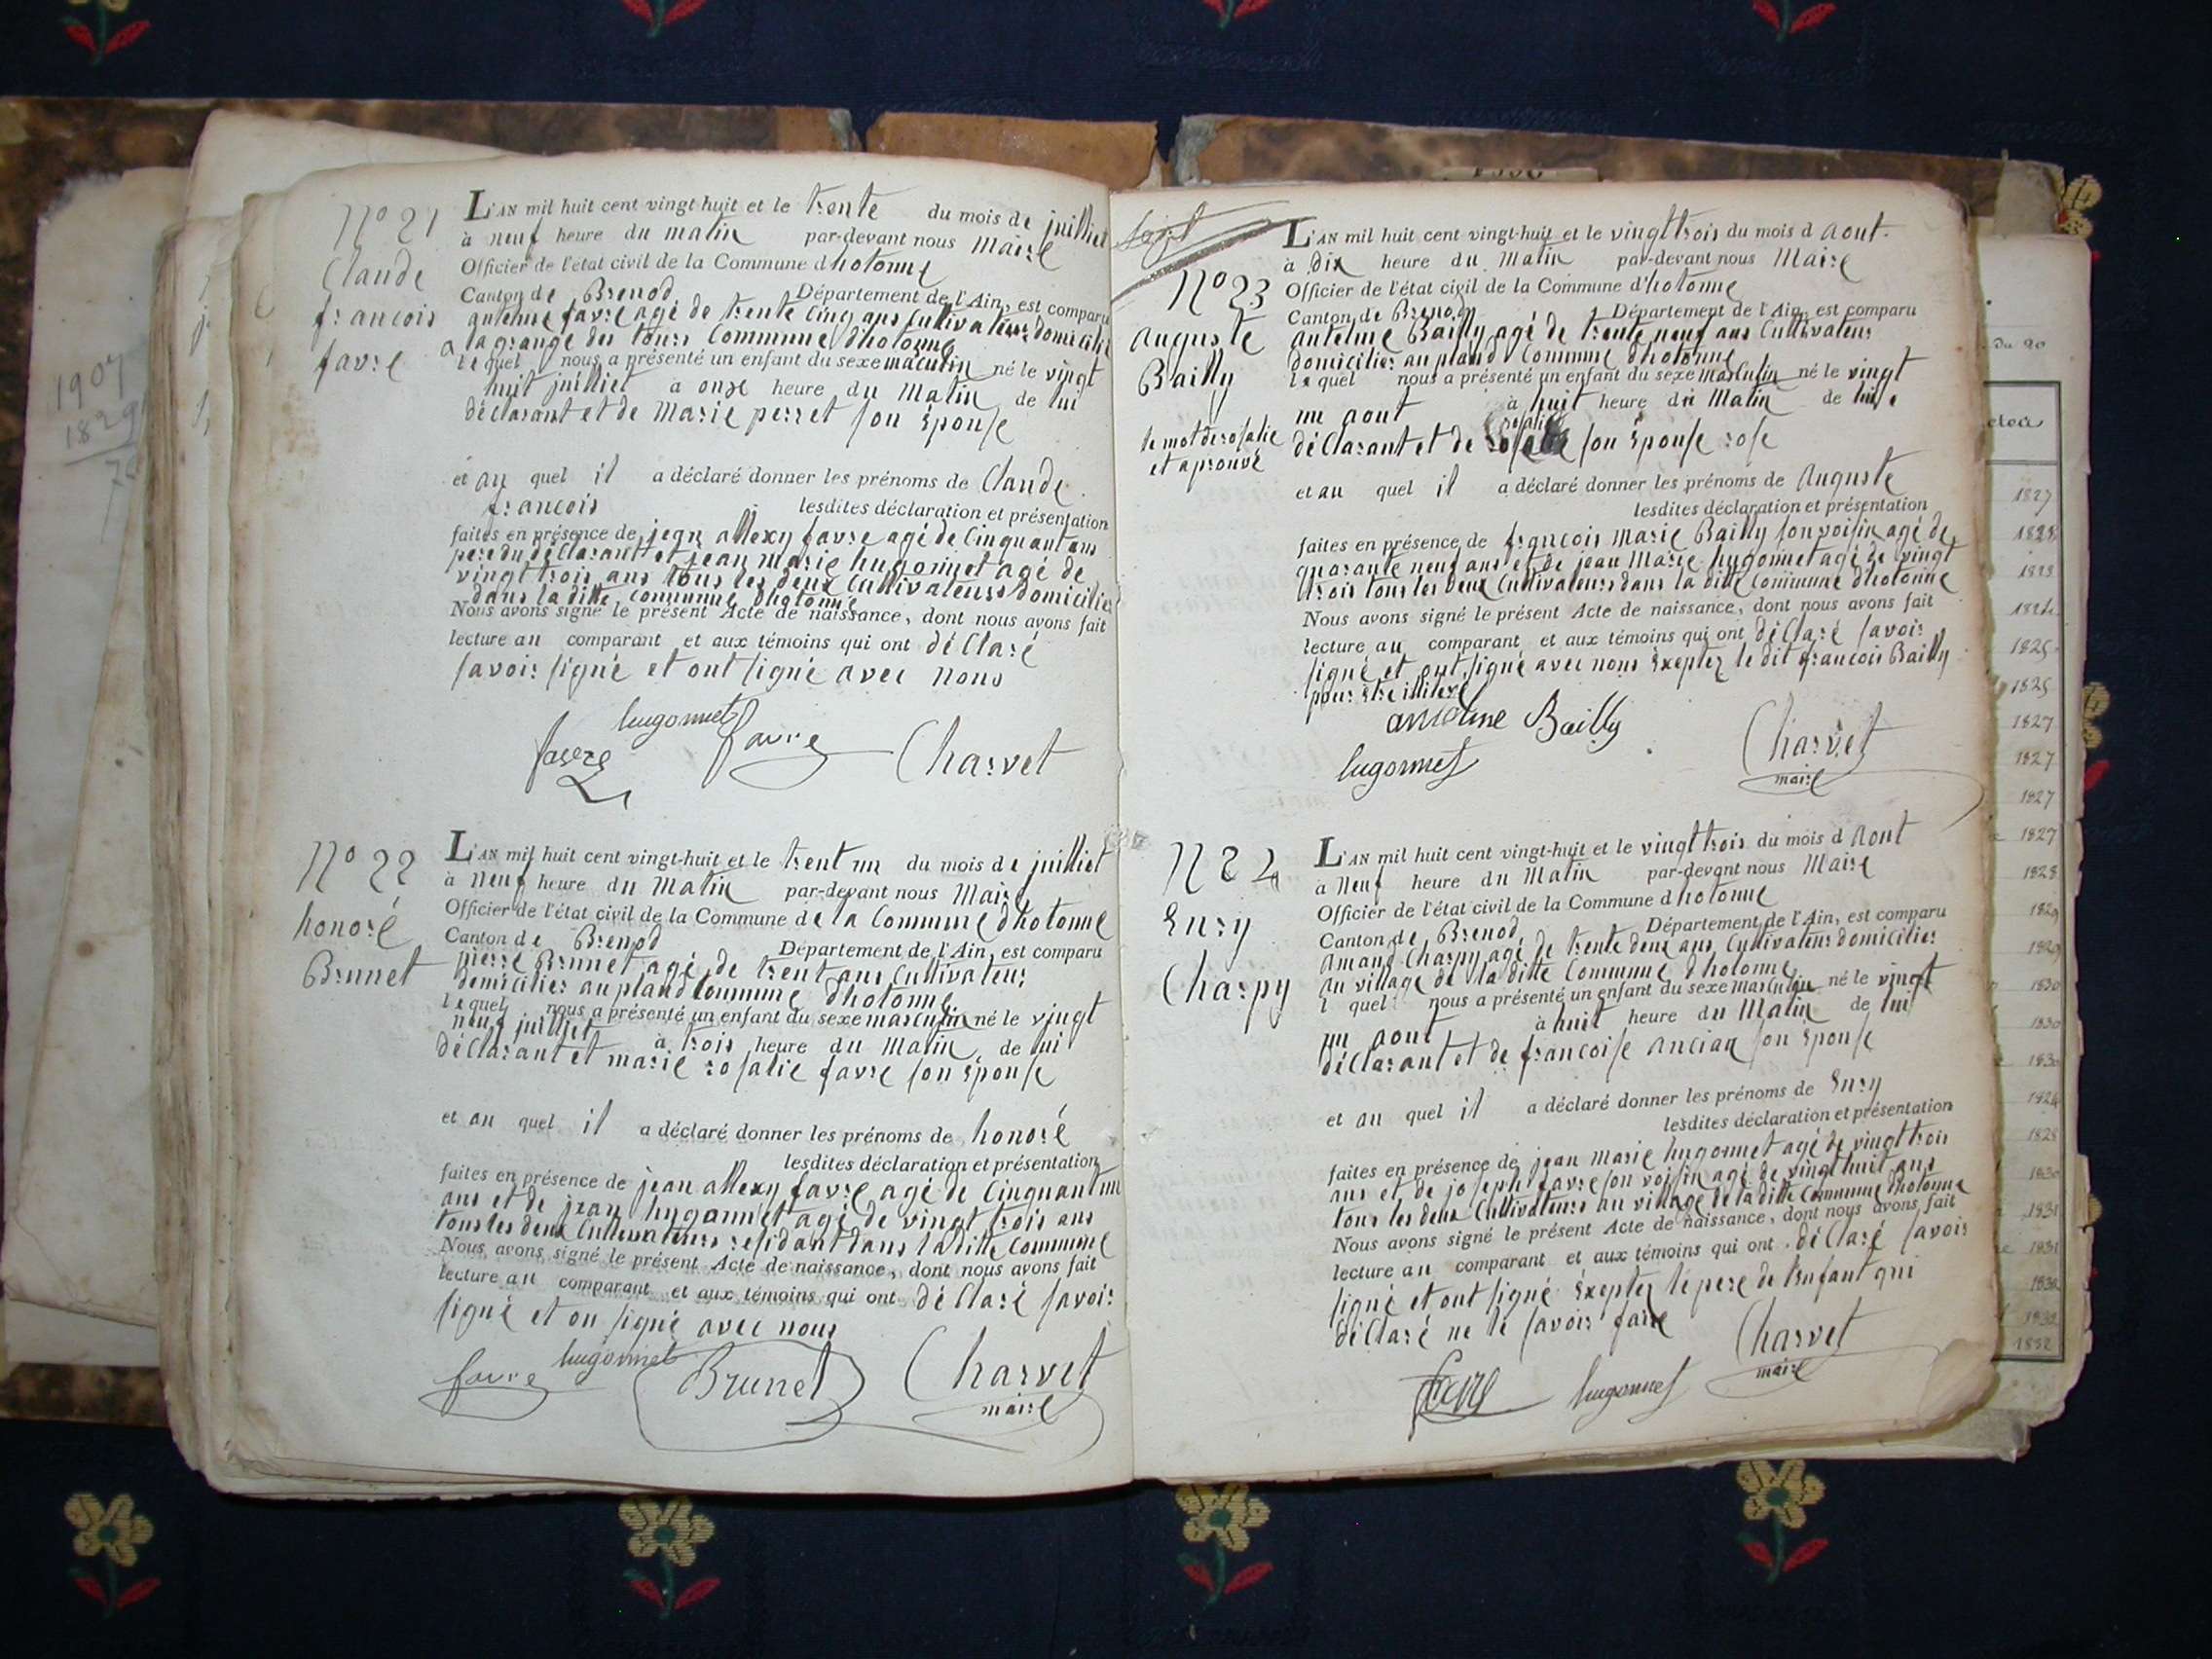 1907
1829
N° 21
Claude
francois
favre
L'AN mil huit cent vingt-huit et le trente du mois de juilliet
à neuf heure du matin par-devant nous maire
Officier de l'état civil de la Commune dhotonne
Canton de Brenod Département de l'Ain, est comparu
antelme favre agé de trente Cinq ans Cultivateur domicilié
a lagrange des tours Commune dhotonne
le quel nous a présenté un enfant du sexe masculin né le vingt
huit juilliet à onze heure du Matin de lui
déclarant et de Marie perret son Epouse
et au quel il a déclaré donner les prénoms de Claude
francois lesdites déclaration et présentation
faites en présence de jean allexy favre agé de Cinquant ans
pere du déclarant et jean marie hugonnet agé de
vingt trois ans tous les deux Cultivateurs domicilies
dans la ditte Commune Dhotonne
Nous avons signé le présent Acte de naissance, dont nous avons fait
lecture au comparant et aux témoins qui ont déClaré
savoir signé et ont signé avec nous
hugonnet
favre favre Charvet
N° 22
honoré
Brunet
L'AN mil huit cent vingt-huit et le trent un du mois de juilliet
à Neuf heure du Matin par-devant nous Maire
Officier de l'état civil de la Commune de la Commune dhotonne
Canton de Brenod Département de l'Ain, est comparu
pierre Brunet agé de trent ans Cultivateur
domicilier au pland Commune dhotonne
le quel nous a présenté un enfant du sexe masculin né le vingt
neuf juilliet à trois heure du Matin de lui
déClarant et marie rosalie favre son Epouse
et au quel il a déclaré donner les prénoms de honoré
lesdites déclaration et présentation
faites en présence de jean allexy favre agé de Cinquant un
ans et de jean hugonnet agé de vingt trois ans
tous les deux Cultivateurs residant dans la ditte Commune
Nous avons signé le présent Acte de naissance, dont nous avons fait
lecture au comparant et aux témoins qui ont déClaré savoir
signé et on signé avec nous
favre hugonnet Brunet Charvet
maire
N° 23
auguste
Bailly
le mot de rosalie
et aprouvé
L'AN mil huit cent vingt-huit et le vingt trois du mois d aout
à Dix heure du Matin par-devant nous Maire
Officier de l'état civil de la Commune d'hotonne
Canton de Brenod Département de l'Ain, est comparu
antelme Bailly agé de trente neuf ans Cultivateur
domicilier au pland Commune dhotonne
le quel nous a présenté un enfant du sexe masculin né le vingt
un aout à huit heure du Matin de lui
rosalie
déClarant et de son Epouse rose
et au quel il a déclaré donner les prénoms de Auguste
lesdites déclaration et présentation
faites en présence de francois Marie Bailly son voisin agé de
quarante neuf ans et de jean Marie hugonnet agé de vingt
trois tous les deux Cultivateurs dans la ditte Commune dhotonne
Nous avons signé le présent Acte de naissance, dont nous avons fait
lecture au comparant et aux témoins qui ont déClaré savoir
signé et ont signé avec nous Exeptez le dit francois Bailly
pour Etre illiteré
antelme Bailly Charvet
hugonnet maire
N 24
Enry
Charpy
L'AN mil huit cent vingt-huit et le vingt trois du mois d Aout
à Neuf heure du Matin par-devant nous Maire
Officier de l'état civil de la Commune dhotonne
Canton de Brenod Département de l'Ain, est comparu
amand Charpy agé de trente deux ans Cultivateur domicilier
au village de la ditte Commune dhotonne
l quel nous a présenté un enfant du sexe masculin né le vingt
un aout à huit heure du Matin de lui
déClarant et de francoise ancian son Epouse
et au quel il a déclaré donner les prénoms de Enry
lesdites déclaration et présentation
faites en présence de jean marie hugonnet agé de vingt trois
ans et de joseph favre son voisin agé de vingt huit ans
tous les deux Cultivateurs au village de la ditte Commune dhotonne
Nous avons signé le présent Acte de naissance, dont nous avons fait
lecture au comparant et aux témoins qui ont déClaré savoir
signé et ont signé Exeptez le pere de l'enfant qui
déClaré ne le savoir faire
favre hugonnet Charvet
maire
du 20
1827
1828
1823
1824
1825
1825
1827
1827
1827
1827
1828
1829
1829
1830
1830
1830
1826
1828
1830
1831
1831
1832
1832
1832